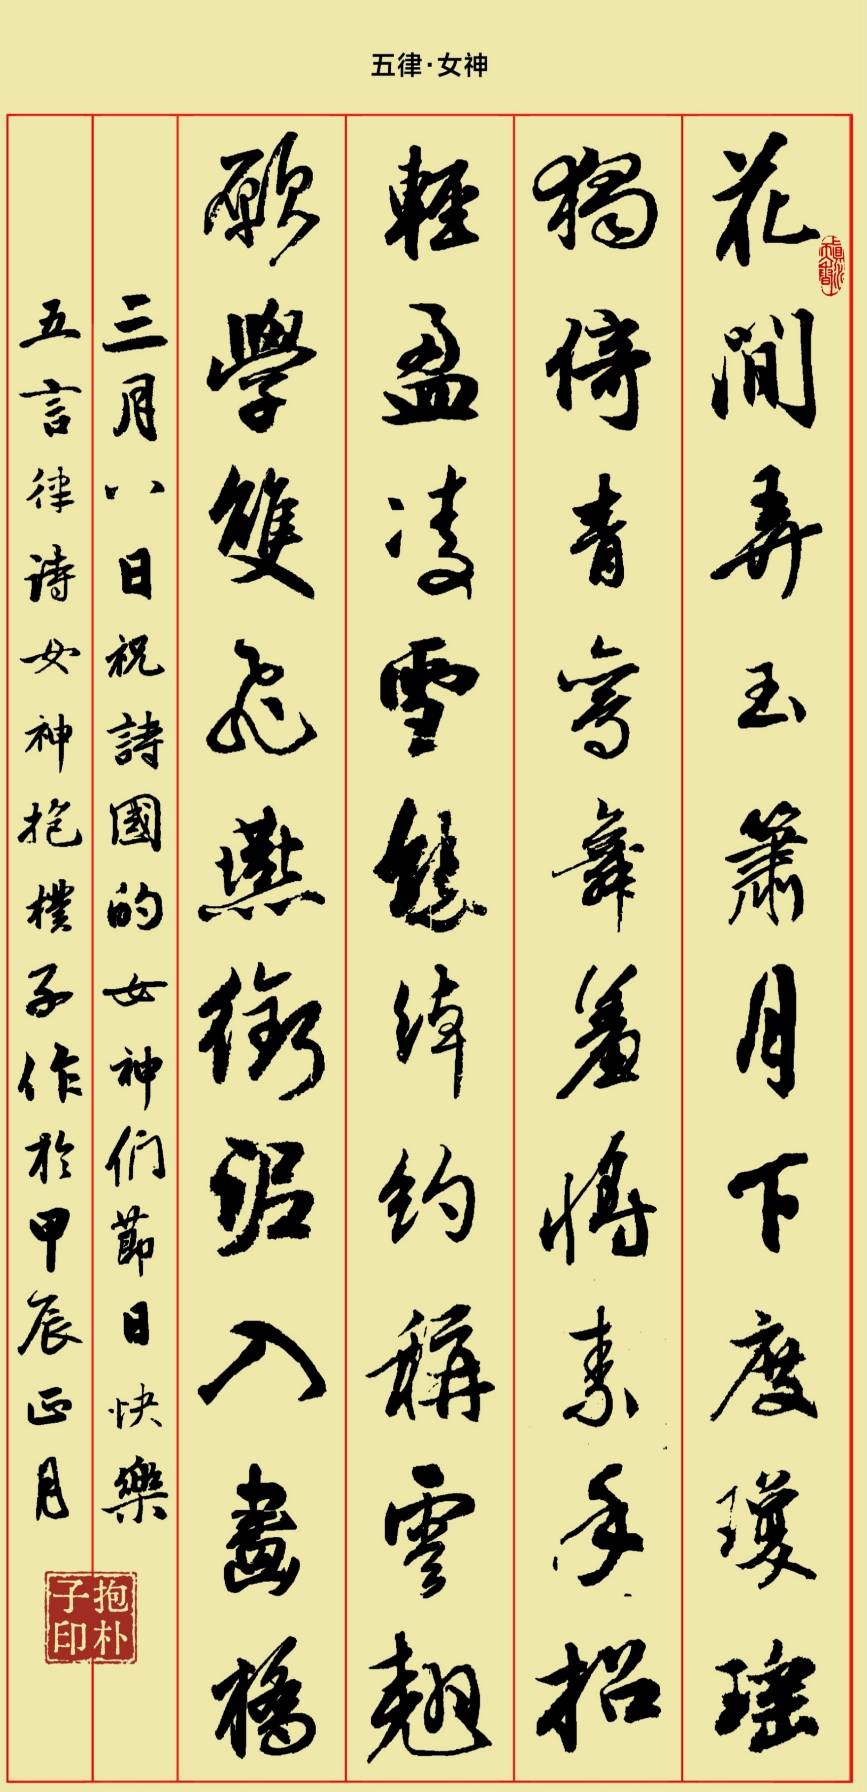 五律·女神
花間弄玉簫月下度瓊瑤
獨倚青鸞舞羞將素手招
輕盈凌雪態綽約稱雲翹
願學雙飛燕銜泥入畫橋
三月八日祝詩國的女神們節日快樂
五言律诗女神抱樸子作於甲辰正月
抱朴
子印